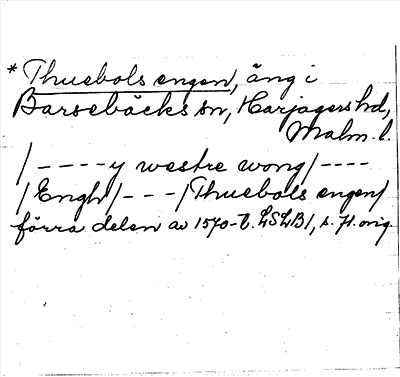 * Thuebols engen, äng i
Barsebäcks sn, Harjagers hd,
Malm. l.
/----y westre wong/----
/Engh/---/Thuebols engen/
förra delen av 1570-t. LSLB/, s. 71. orig.